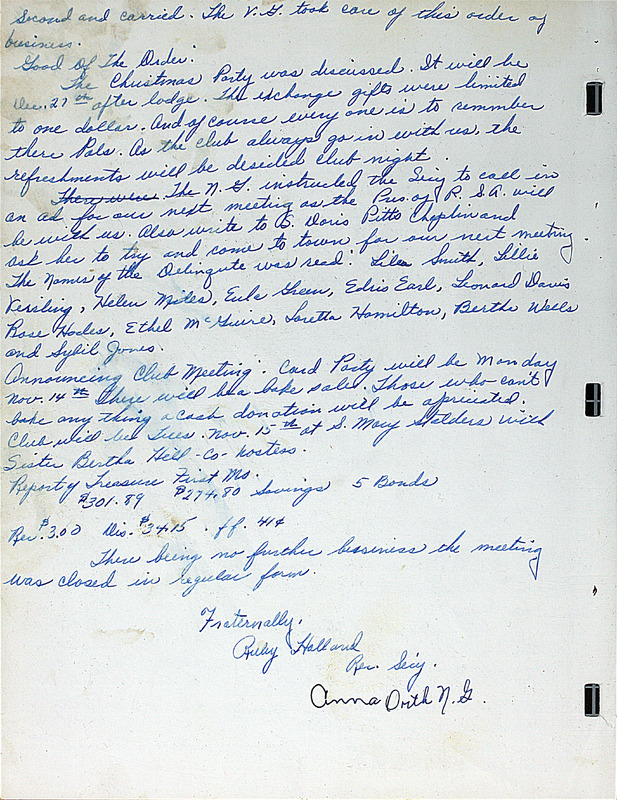 Second and carried. The V.G. took care of this order of
business.
Good Of The Order.
The Christmas Party was discussed. It will be
Dec. 27th after lodge. The exchange gifts were limited
to one dollar. And of course every one is to remmber
there Pals. As the club always go in with us, the
refreshments will be desided Club night.
There were The N.G. instructed the Secy to call in
an ad for our next meeting as the Pres. of R.S.A. will
be with us. Also write to S. Doris Pitts Choplin and
ask her to try and come to town for our next meeting.
The Names of the Delinqute was read. Lila Smith, Lillie
Kersling, Helen Miles, Eula Green, Edris Earl, Leonard Davis
Rose Hodes, Ethel McGuire, Loretta Hamilton, Bertha Wells
and Sybil Jones.
Announcing Club Meeting. Card Party will be Monday
Nov. 14th there will be a bake sale. Those who can't
bake any thing a cash donation will be apriciated.
Club will be Tues. Nov. 15th at S. Mary Stalders with
Sister Bertha Hill-Co-hostess.
Report of Treasure First Mo.
$301.89 $274.80 Savings 5 Bonds
Rec. $3.00 Dis. $34.15. ff. 41¢
There being no further bessiness the meeting
was closed in regular form.
Fraternally.
Ruby Holland
Rec. Secy.
Anna Orth N.G.